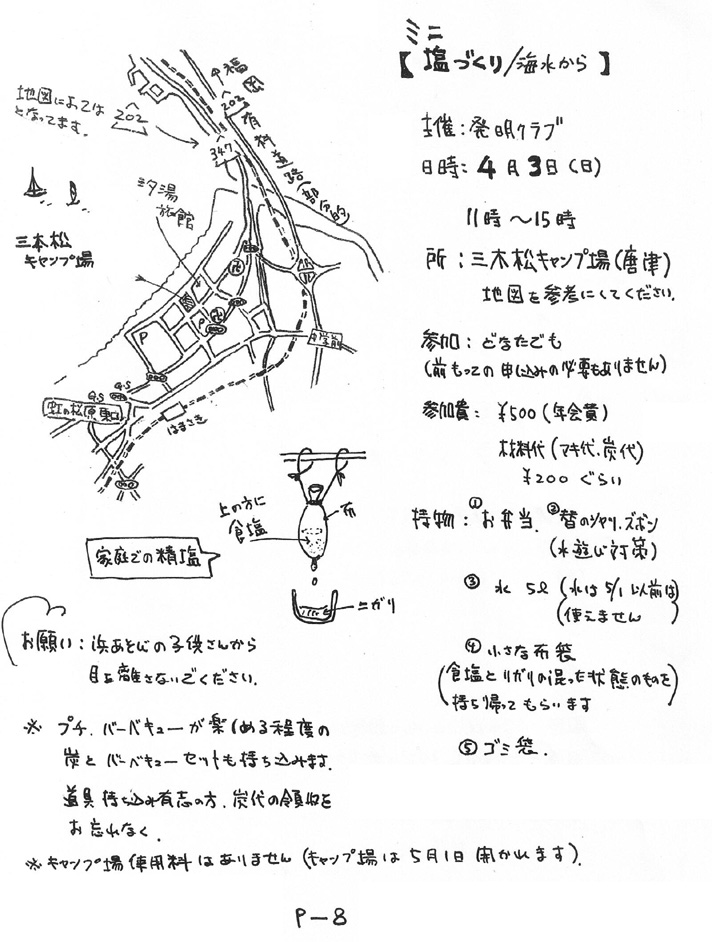 ミニ
【塩づくり/海水から】
主催:発明クラブ
日時:4月3日(日)
11時〜15時
所:三本松キャンプ場(唐津)
地図を参考にしてください。
参加:どなたでも
(前もっての申し込みの必要もありません)
参加費:¥500(年会費)
材料代(マキ代、炭代)
¥200ぐらい
持物:①お弁当、②替のシャツ、ズボン
(水遊び対策)
③水 5ℓ(水は5/1以前は
使えません)
④小さな布袋
(食塩とニガリの混った状態のものを
持ち帰ってもらいます)
⑤ゴミ袋.
地図によっては
202
となってます。
↑福岡
202
有料道路(部分的)
347
汐湯
旅館
三本松
キャンプ場
P
P
G.S
G.S
虹の松原東口
はまさき
上の方に
食塩
布
家庭での精塩
ニガリ
お願い:浜あそびの子供さんから
目を離さないでください.
※ プチ.バーベキューが楽しめる程度の
炭とバーベキューセットも持ち込みます.
道具持ち込み有志の方.炭代の領収を
お忘れなく.
※キャンプ場使用料はありません(キャンプ場は5月1日開かれます).
P-8